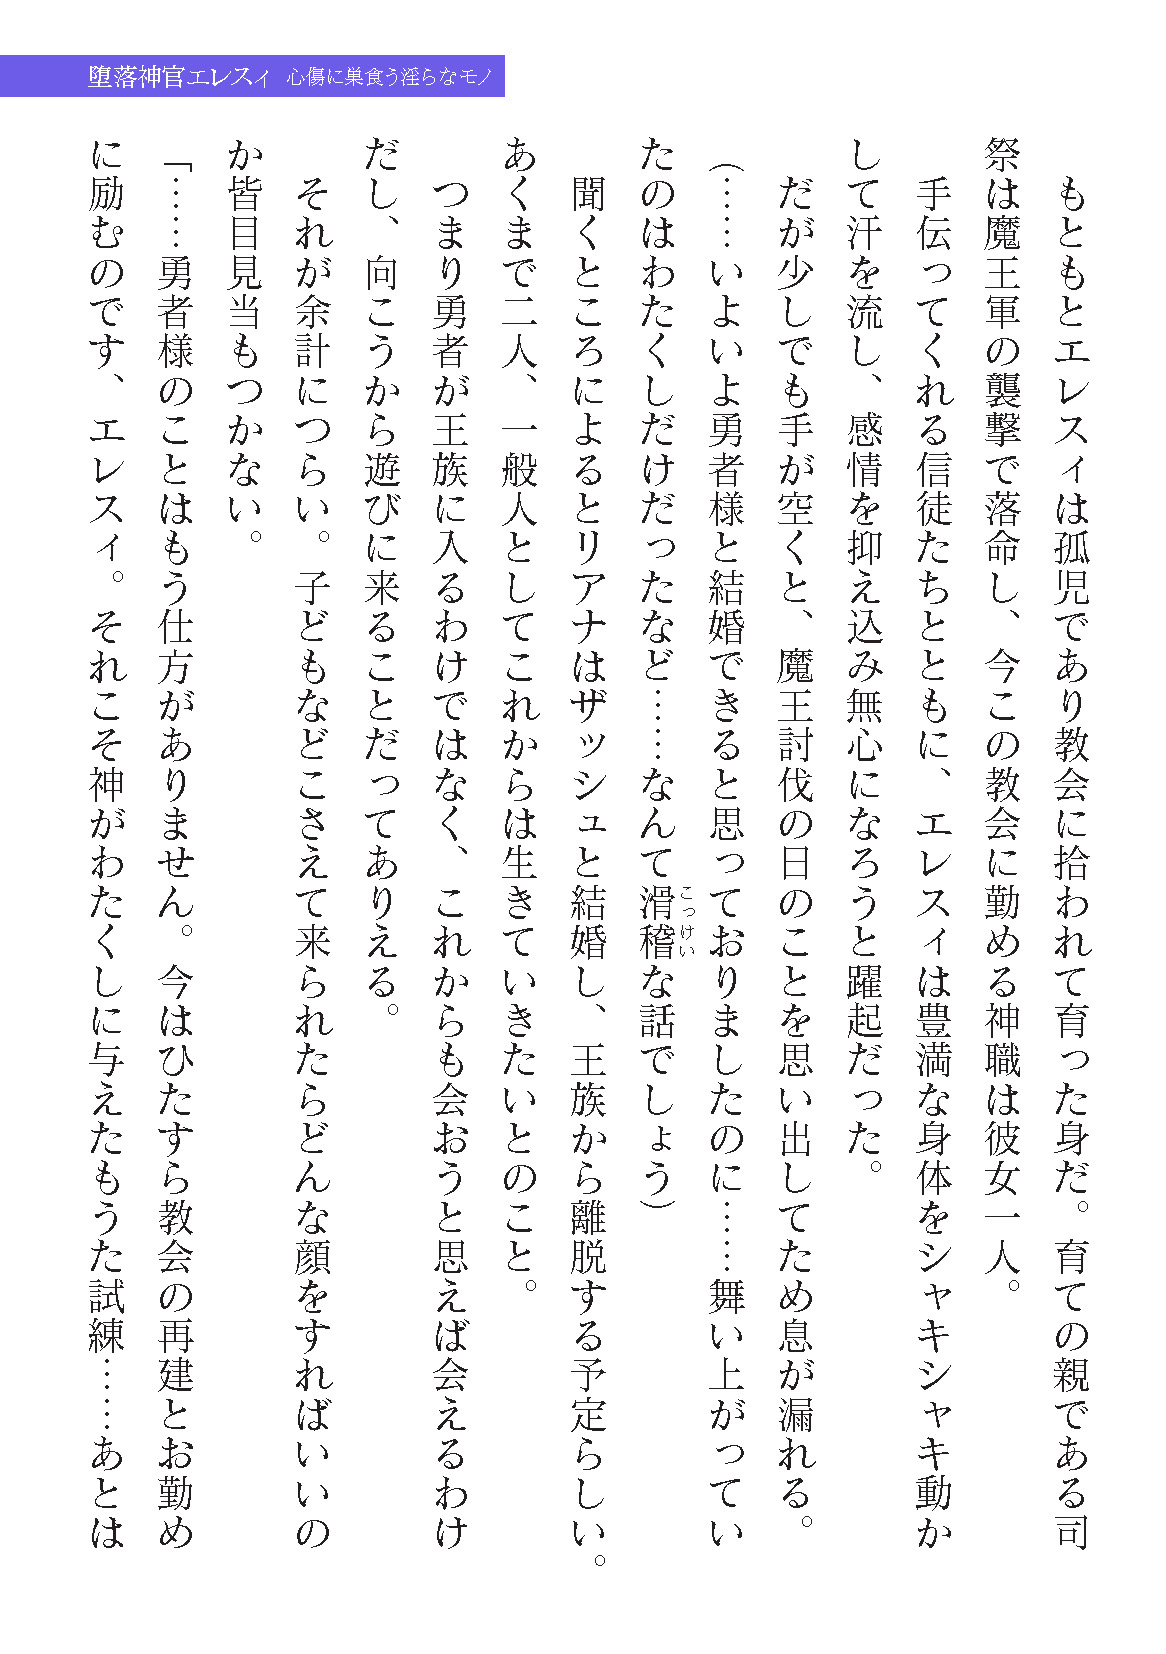 堕落神官エレスィ 心傷に巣食う淫らなモノ
もともとエレスィは孤児であり教会に拾われて育った身だ。育ての親である司
祭は魔王軍の襲撃で落命し、今この教会に勤める神職は彼女一人。
手伝ってくれる信徒たちとともに、エレスィは豊満な身体をシャキシャキ動か
して汗を流し、感情を抑え込み無心になろうと躍起だった。
だが少しでも手が空くと、魔王討伐の日のことを思い出してため息が漏れる。
（……いよいよ勇者様と結婚できると思っておりましたのに……舞い上がってい
たのはわたくしだけだったなど……なんて滑稽な話でしょう）
こっけい
聞くところによるとリアナはザッシュと結婚し、王族から離脱する予定らしい。
あくまで二人、一般人としてこれからは生きていきたいとのこと。
つまり勇者が王族に入るわけではなく、これからも会おうと思えば会えるわけ
だし、向こうから遊びに来ることだってありえる。
それが余計につらい。子どもなどこさえて来られたらどんな顔をすればいいの
か皆目見当もつかない。
「……勇者様のことはもう仕方がありません。今はひたすら教会の再建とお勤め
に励むのです、エレスィ。それこそ神がわたくしに与えたもうた試練……あとは